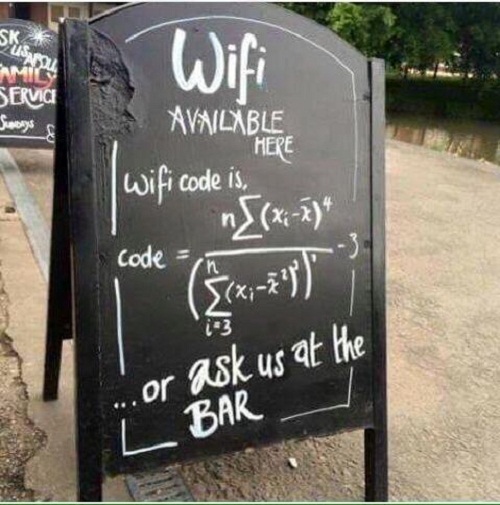 SK
FAMILY
SERVICE
Sundays
Wifi
AVAILABLE
HERE
Wifi code is,
code = n∑(xᵢ-x̄)⁴ / (∑ⁿᵢ₌₃(xᵢ-x̄²)²)² - 3
...or ask us at the
BAR